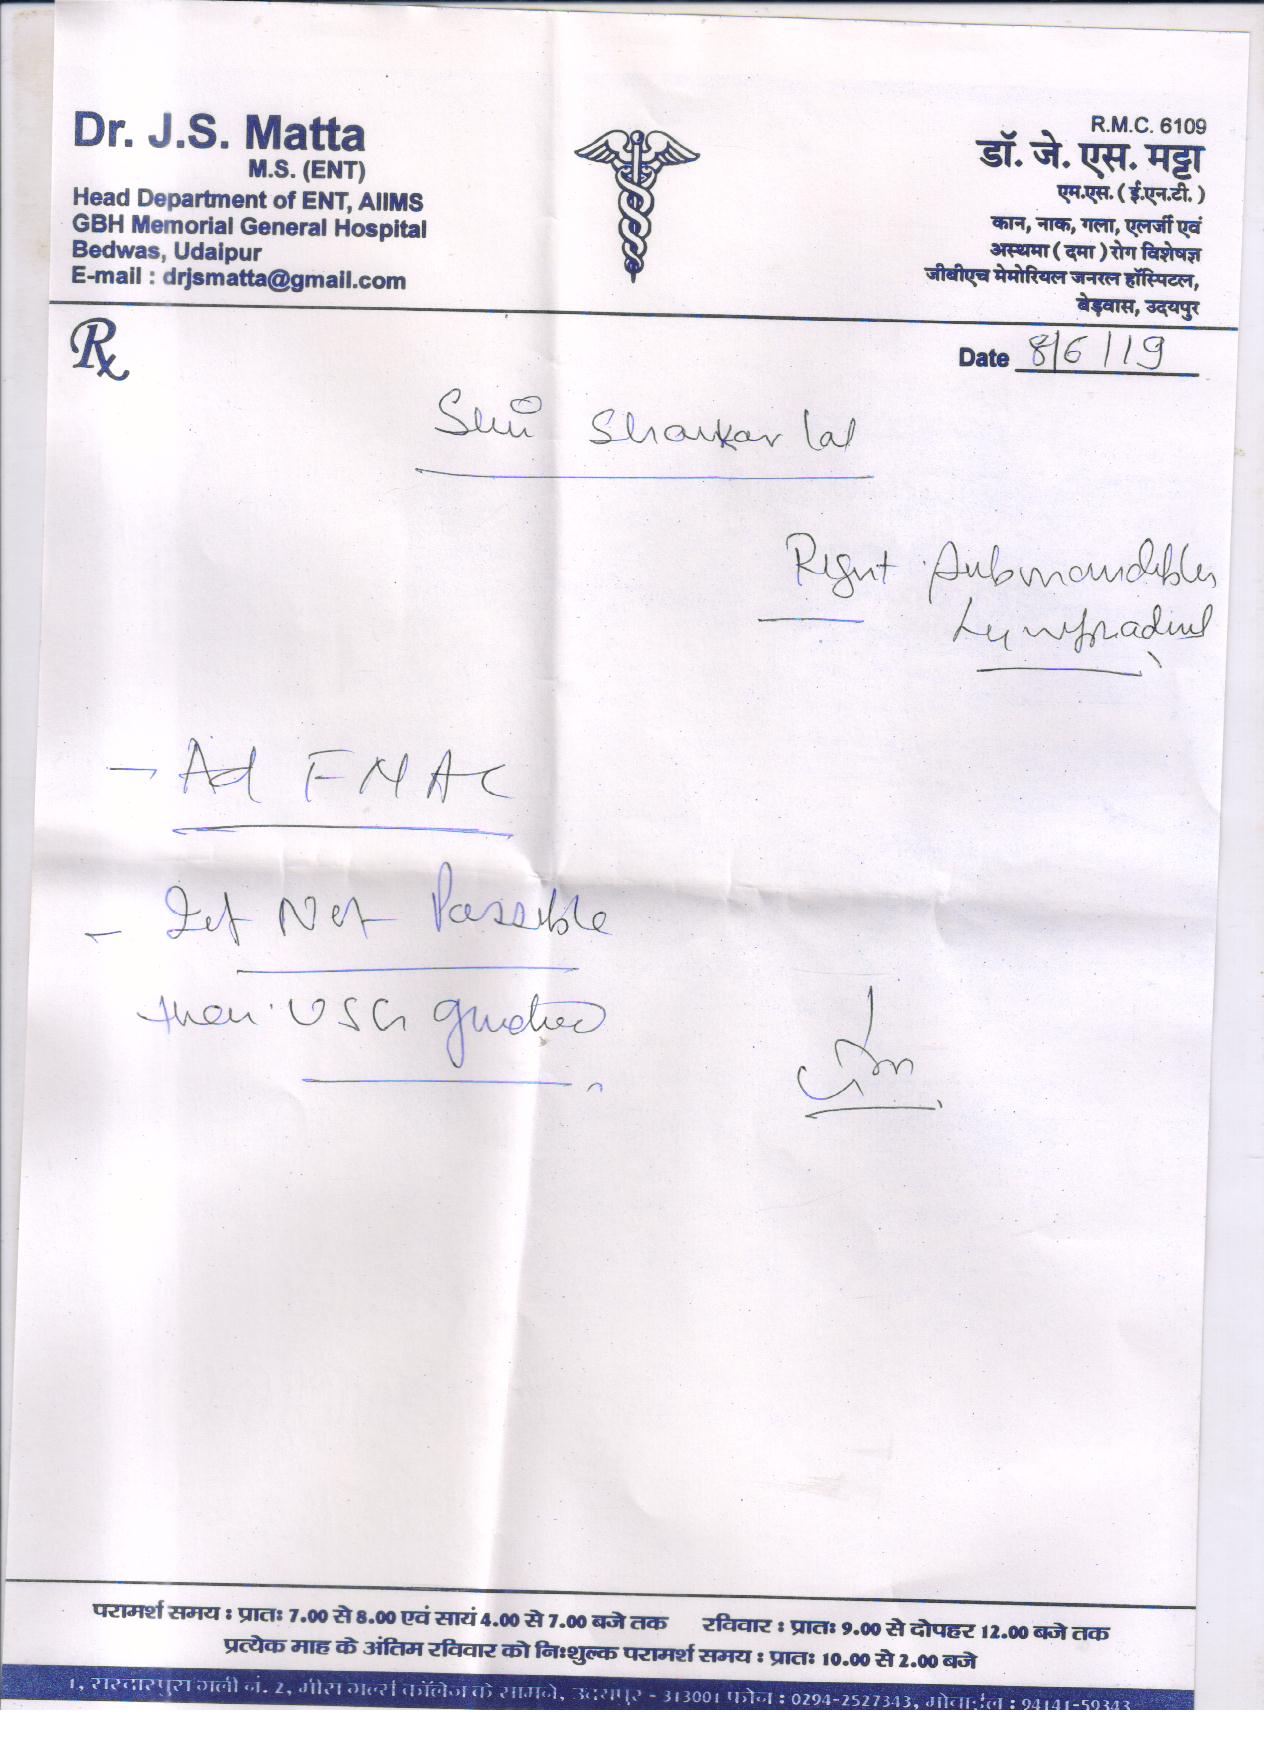 Dr. J.S. Matta
M.S. (ENT)
Head Department of ENT, AIIMS
GBH Memorial General Hospital
Bedwas, Udaipur
E-mail : drjsmatta@gmail.com
R.M.C. 6109
डॉ. जे. एस. मट्टा
एम.एस. ( ई.एन.टी. )
कान, नाक, गला, एलर्जी एवं
अस्थमा ( दमा ) रोग विशेषज्ञ
जीबीएच मेमोरियल जनरल हॉस्पिटल,
बेड़वास, उदयपुर
Rx
Date 8/6/19
Shri Shankar lal
Right Submandibular
- Ad FNAC
- If Not Possible
then USG guided
परामर्श समय : प्रातः 7.00 से 8.00 एवं सायं 4.00 से 7.00 बजे तक रविवार : प्रातः 9.00 से दोपहर 12.00 बजे तक
प्रत्येक माह के अंतिम रविवार को निःशुल्क परामर्श समय : प्रातः 10.00 से 2.00 बजे
1, सरदारपुरा गली नं. 2, मीरा गर्ल्स कॉलेज के सामने, उदयपुर - 313001 फोन : 0294-2527343, मोबाईल : 94141-59343